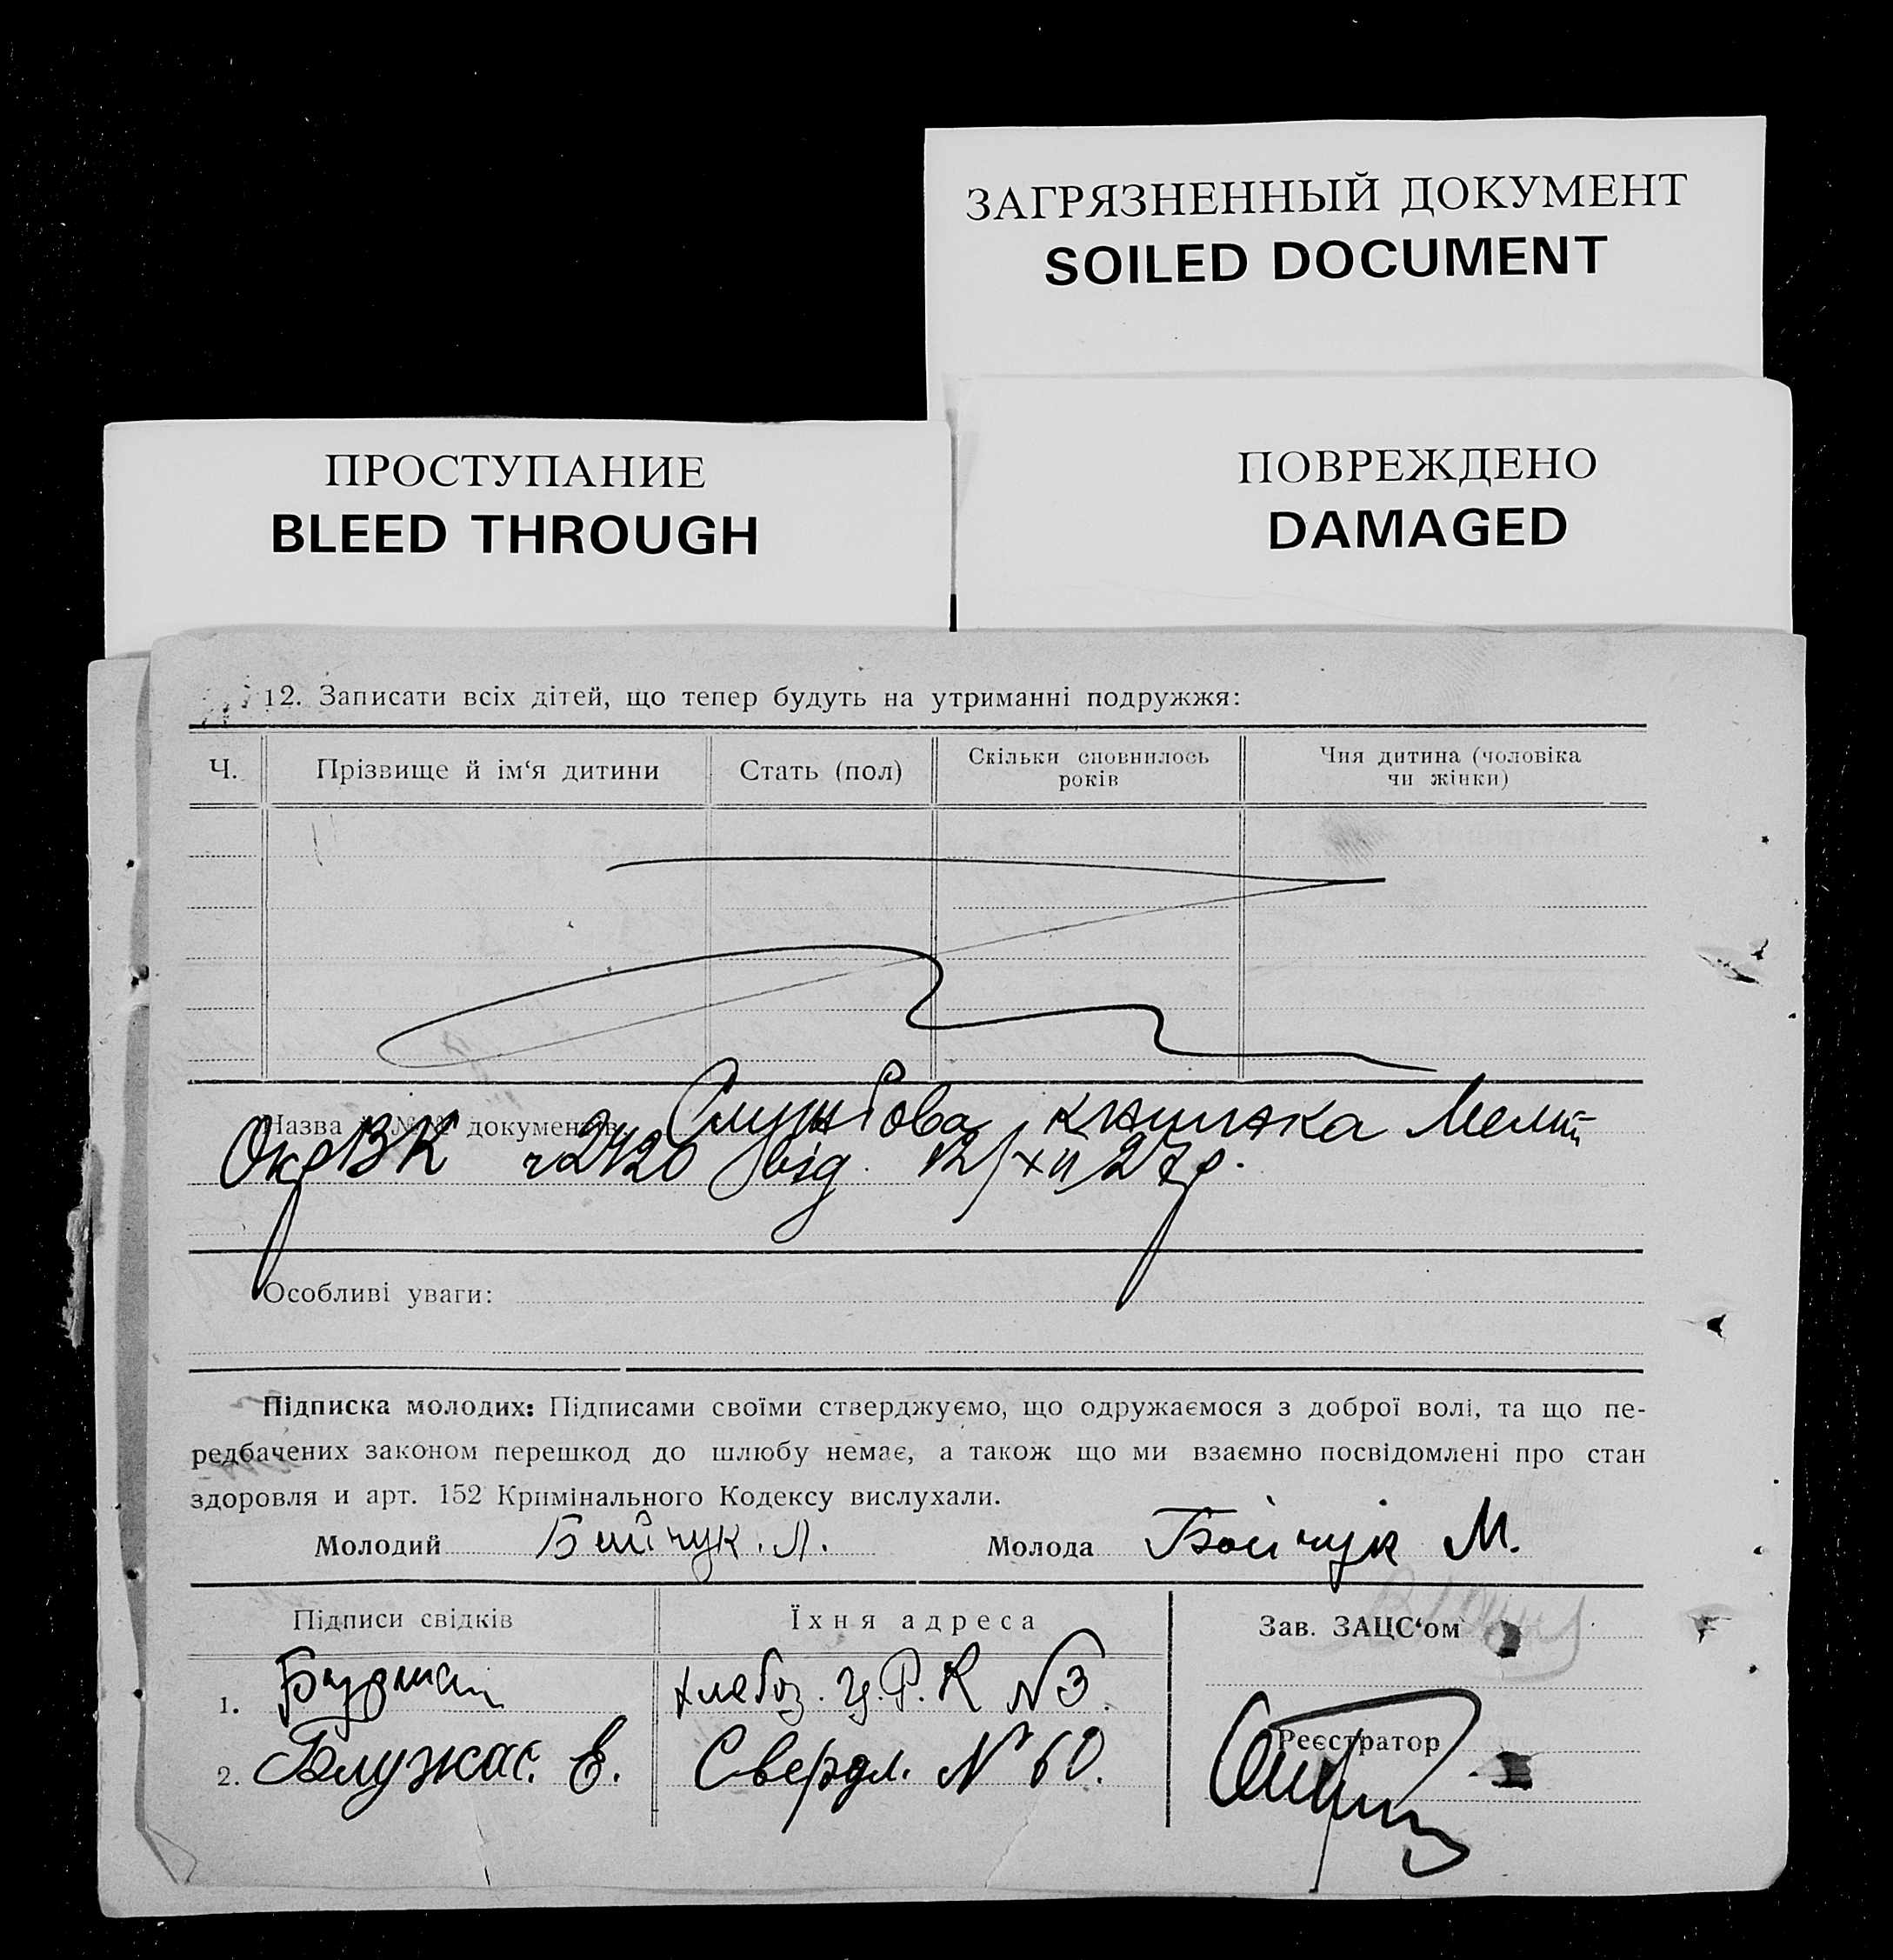 ЗАГРЯЗНЕННЫЙ ДОКУМЕНТ
SOILED DOCUMENT
ПРОСТУПАНИЕ
BLEED THROUGH
ПОВРЕЖДЕНО
DAMAGED
12. Записати всіх дітей, що тепер будуть на утриманні подружжя:
Ч. Прізвище й ім‘я дитини Стать (пол) Скільки сповнилось років Чия дитина (чоловіка чи жінки)
Назва й №№ документів Службова книжка Меліт
ОкрВК ч 2420 від 12/XII 27 р.
Особливі уваги:
Підписка молодих: Підписами своїми стверджуємо, що одружаємося з доброї волі, та що пе-
редбачених законом перешкод до шлюбу немає, а також що ми взаємно посвідомлені про стан
здоровля и арт. 152 Кримінального Кодексу вислухали.
Молодий Бойчук. Л. Молода Бойчук М.
Підписи свідків Їхня адреса Зав. ЗАЦС‘ом
1. хлебоз. Ц.Р.К №3.
Реєстратор
2. Е. Свердл. № 60.